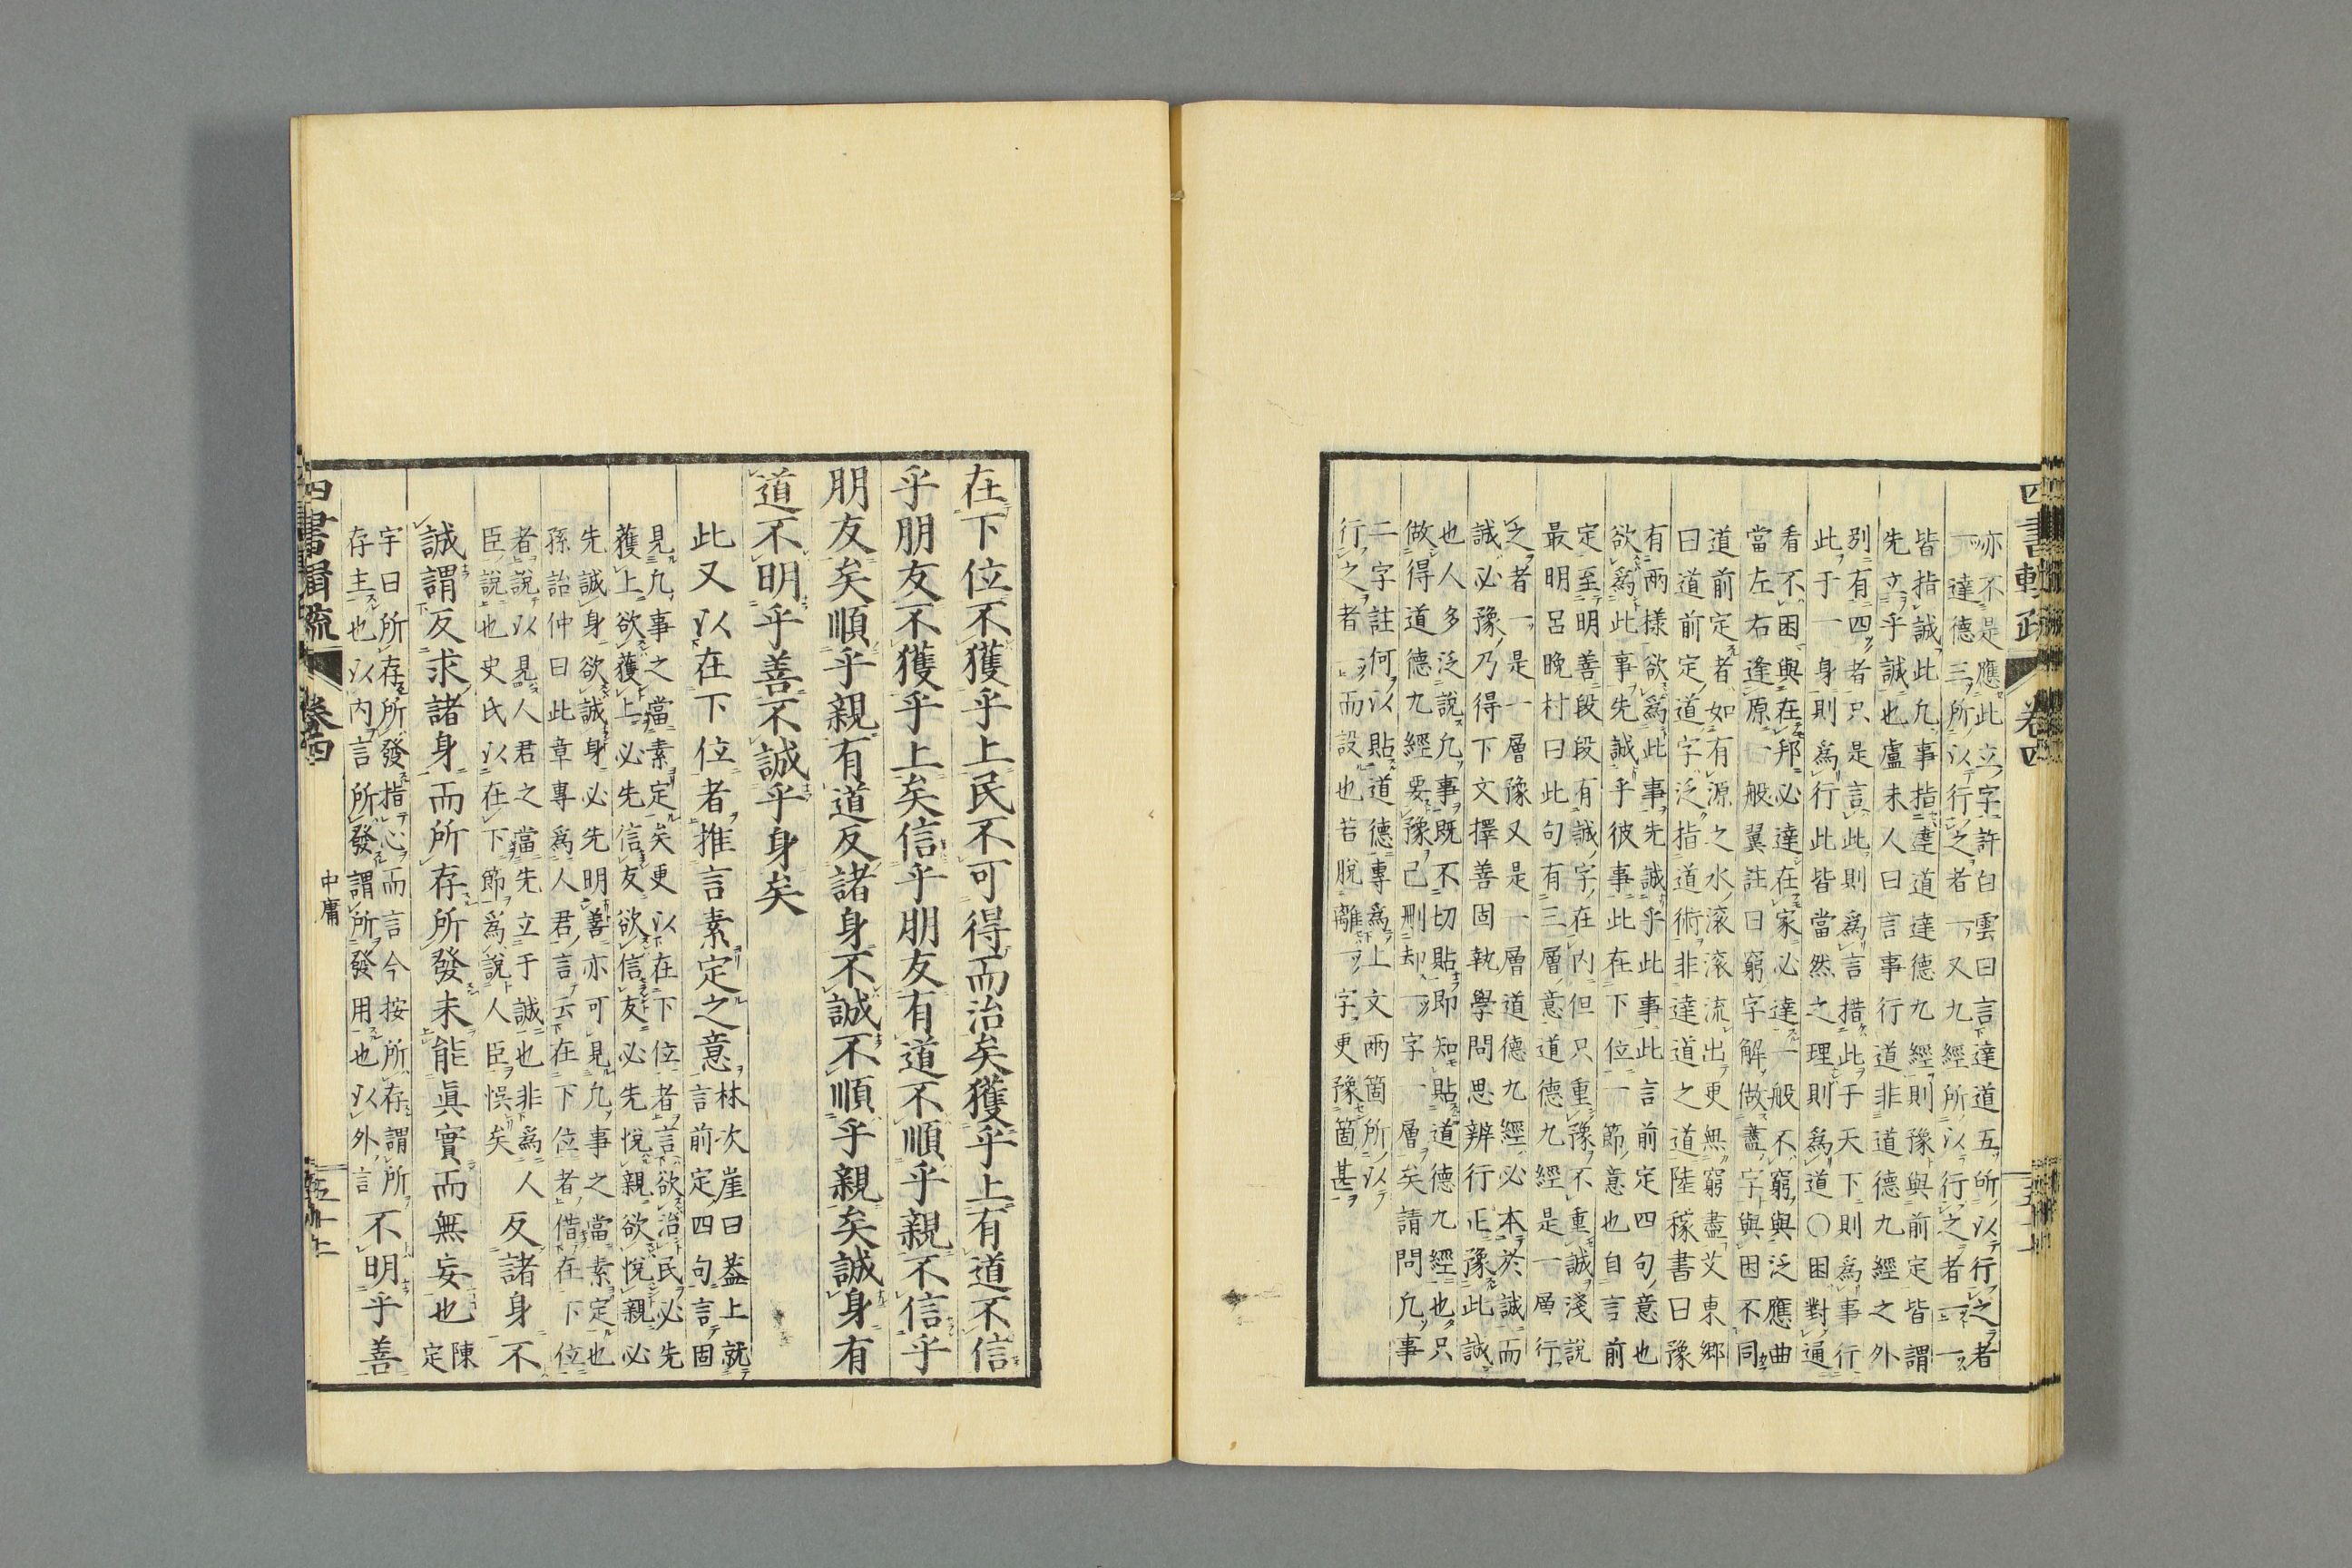 四書輯疏 卷四
亦不是應此立字許白雲曰言達道五所以行之者
一達德三所以行之者一又九經所以行之者一一
皆指誠此凡事指達道達德九經則豫與前定皆謂
先立乎誠也盧未人曰言事行道非道德九經之外
別有四者只是言此則爲言措此于天下則爲事行
此于一身則爲行此皆當然之理則爲道○困對通
看不困與在邦必達在家必達一般不窮與泛應曲
當左右逢原一般翼註曰窮字解做盡字與困不同
道前定者如有源之水滾滾流出更無窮盡艾東鄉
曰道前定道字泛指道術非達道之道陸稼書曰豫
有兩樣欲爲此事先誠乎此事此言前定四句意也
欲爲此事先誠乎彼事此在下位一節意也自言前
定至明善段段有誠字在內但只重豫不重誠淺說
最明呂晚村曰此句有三層意道德九經是一層行
之者一是一層豫又是一層道德九經必本於誠而
誠必豫乃得下文擇善固執學問思辨行正豫此誠
也人多泛說凡事既不切貼即知貼道德九經也只
做得道德九經要豫己刪却一字一層矣請問凡事
二字註何以貼道德專爲上文兩箇所以
行之者一而設也若脫離一字更豫箇甚
在下位不獲乎上民不可得而治矣獲乎上有道不信
乎朋友不獲乎上矣信乎朋友有道不順乎親不信乎
朋友矣順乎親有道反諸身不誠不順乎親矣誠身有
道不明乎善不誠乎身矣
此又以在下位者推言素定之意林次崖曰蓋上就
言前定四句言固
見凡事之當素定矣更以在下位者言欲治民必先
獲上欲獲上必先信友欲信友必先悅親欲悅親必
先誠身欲誠身必先明善亦可見凡事之當素定也
孫詒仲曰此章專爲人君言云在下位者借在下位
者說以見人君之當先立于誠也非爲人
臣說也史氏以在下節爲說人臣悞矣
反諸身不
誠謂反求諸身而所存所發未能眞實而無妄也陳
定
宇曰所存所發指心而言今按所存謂所
存主也以內言所發謂所發用也以外言
不明乎善
四書輯疏 卷四 中庸 五十七